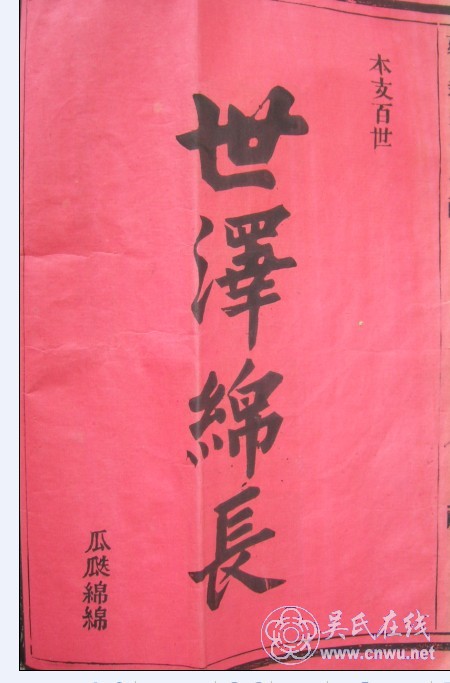 木支百世
世澤綿長
瓜瓞綿綿
吴氏在线
www.cnwu.net